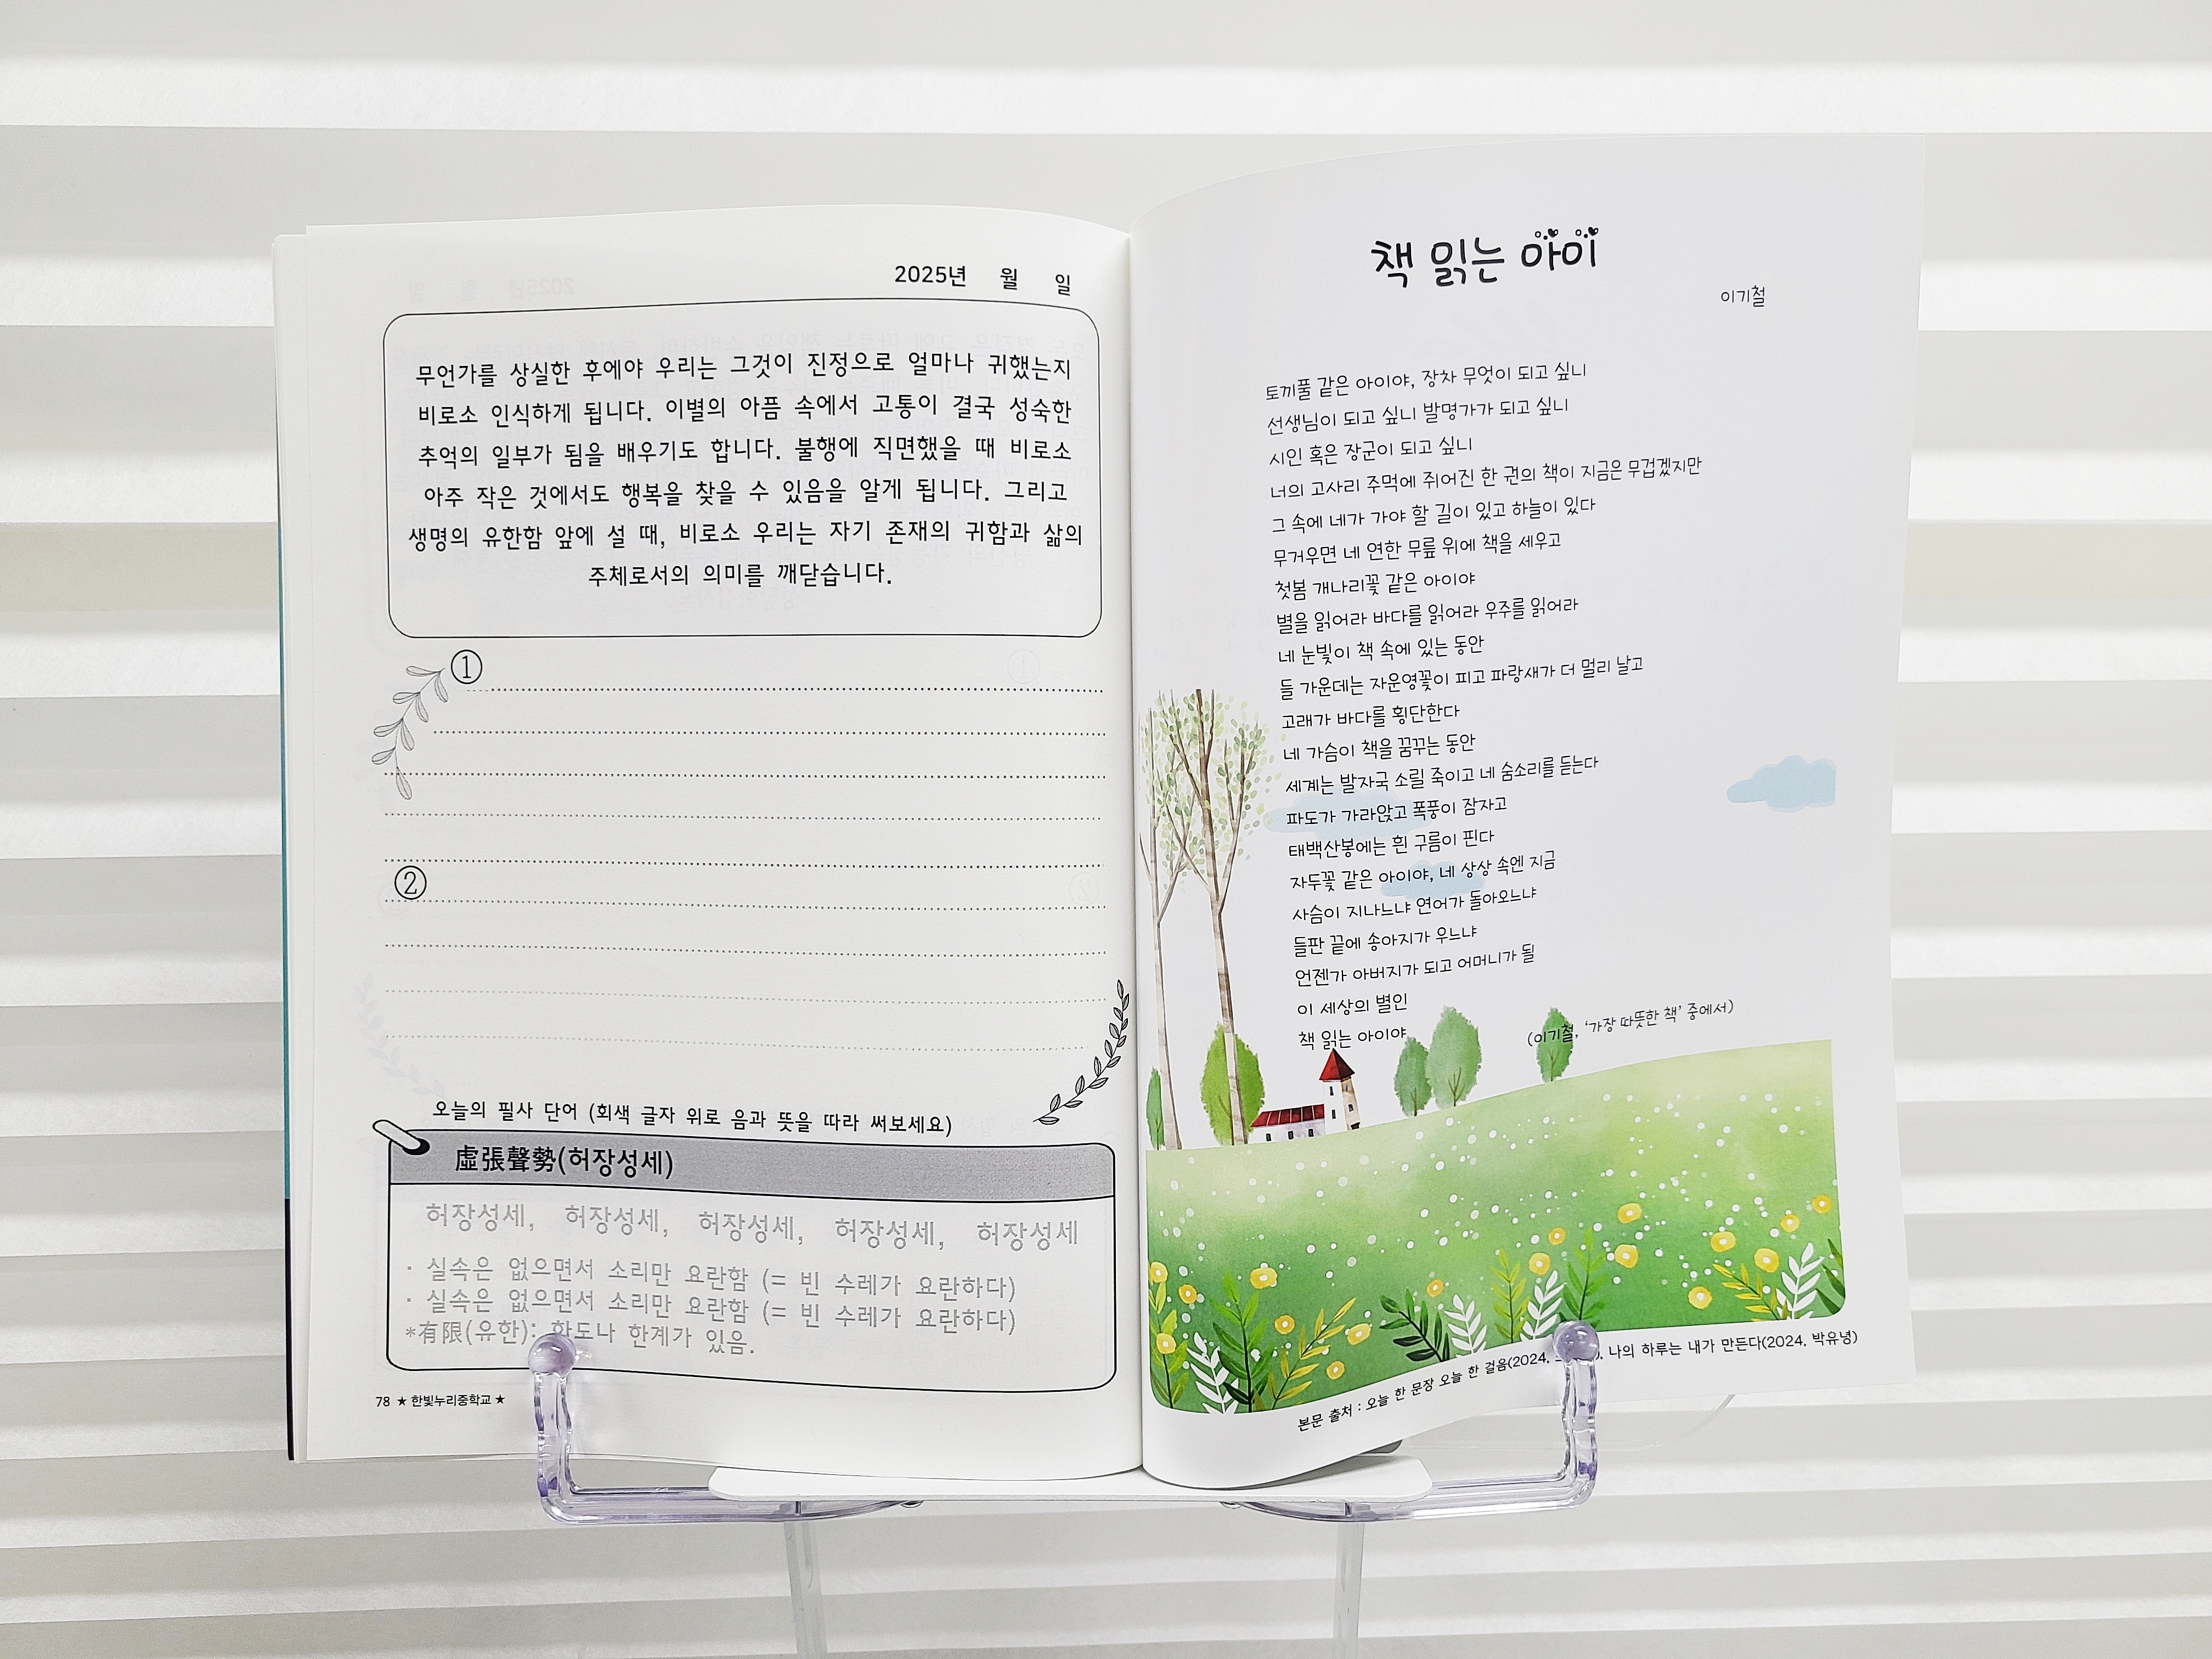 2025년 월 일
무언가를 상실한 후에야 우리는 그것이 진정으로 얼마나 귀했는지
비로소 인식하게 됩니다. 이별의 아픔 속에서 고통이 결국 성숙한
추억의 일부가 됨을 배우기도 합니다. 불행에 직면했을 때 비로소
아주 작은 것에서도 행복을 찾을 수 있음을 알게 됩니다. 그리고
생명의 유한함 앞에 설 때, 비로소 우리는 자기 존재의 귀함과 삶의
주체로서의 의미를 깨닫습니다.
①
②
오늘의 필사 단어 (회색 글자 위로 음과 뜻을 따라 써보세요)
虛張聲勢(허장성세)
허장성세, 허장성세, 허장성세, 허장성세, 허장성세
· 실속은 없으면서 소리만 요란함 (= 빈 수레가 요란하다)
· 실속은 없으면서 소리만 요란함 (= 빈 수레가 요란하다)
*有限(유한): 한도나 한계가 있음.
78 ★ 한빛누리중학교 ★
책 읽는 아이
이기철
토끼풀 같은 아이야, 장차 무엇이 되고 싶니
선생님이 되고 싶니 발명가가 되고 싶니
시인 혹은 장군이 되고 싶니
너의 고사리 주먹에 쥐어진 한 권의 책이 지금은 무겁겠지만
그 속에 네가 가야 할 길이 있고 하늘이 있다
무거우면 네 연한 무릎 위에 책을 세우고
첫봄 개나리꽃 같은 아이야
별을 읽어라 바다를 읽어라 우주를 읽어라
네 눈빛이 책 속에 있는 동안
들 가운데는 자운영꽃이 피고 파랑새가 더 멀리 날고
고래가 바다를 횡단한다
네 가슴이 책을 꿈꾸는 동안
세계는 발자국 소릴 죽이고 네 숨소리를 듣는다
파도가 가라앉고 폭풍이 잠자고
태백산봉에는 흰 구름이 핀다
자두꽃 같은 아이야, 네 상상 속엔 지금
사슴이 지나느냐 연어가 돌아오느냐
들판 끝에 송아지가 우느냐
언젠가 아버지가 되고 어머니가 될
이 세상의 별인
책 읽는 아이야
(이기철, '가장 따뜻한 책' 중에서)
본문 출처 : 오늘 한 문장 오늘 한 걸음(2024, ), 나의 하루는 내가 만든다(2024, 박유녕)